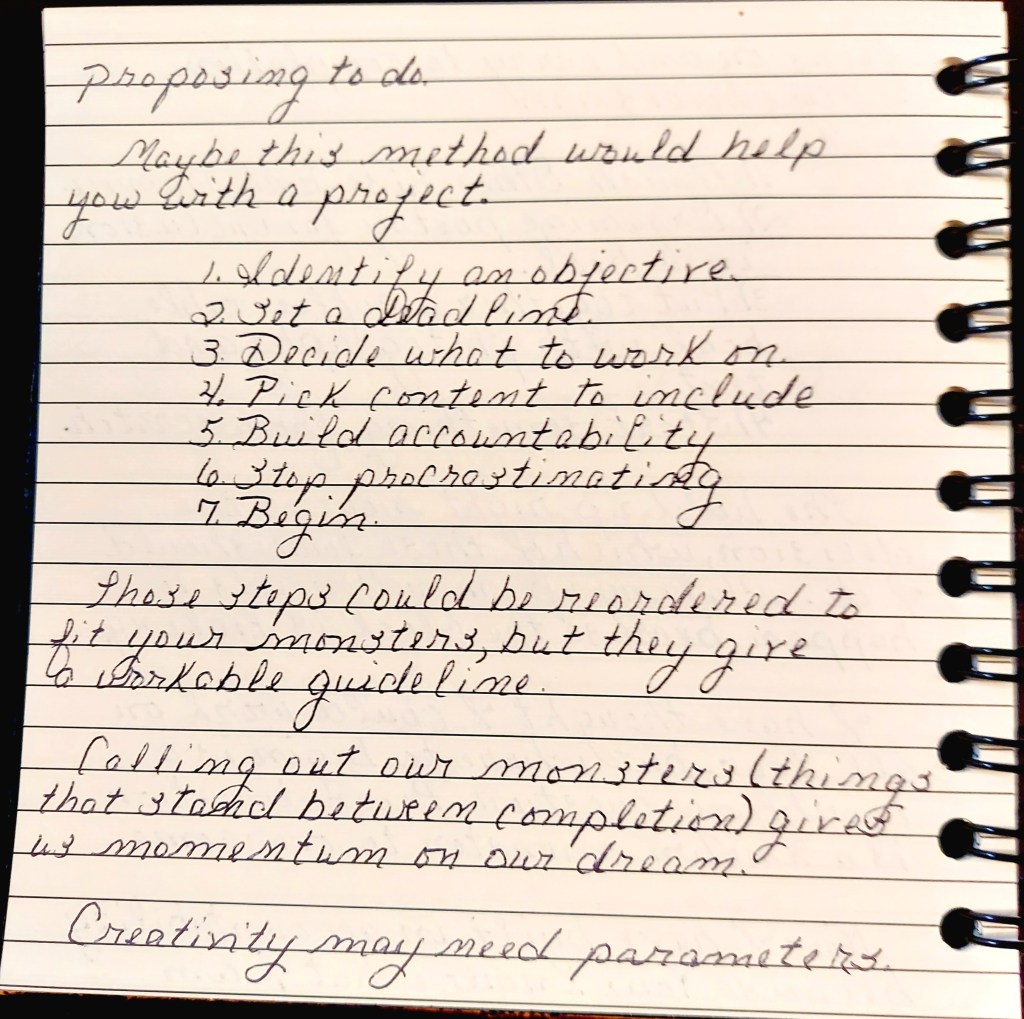 Proposing to do.
Maybe this method would help
you with a project.
1. Identify an objective.
2. Set a deadline.
3. Decide what to work on.
4. Pick content to include
5. Build accountability
6. Stop procrastinating
7. Begin.
Those steps could be reordered to
fit your monsters, but they give
a workable guideline.
Calling out our monsters (things
that stand between completion) gives
us momentum on our dream.
Creativity may need parameters.